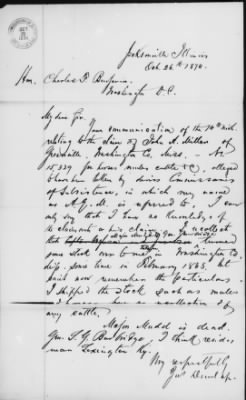 Jacksonville Illinois
Oct. 26th 1874.
Hon. Charles F. Benjamin
Washington D.C.
My dear Sir
Your communication of the 10th inst.
relating to the claim of John A. Miller of
Greenville, Washington Co. Miss. - No.
15,229 for horses, mules, cattle &c, alleged
to have been taken by various Commissaries
of Subsistence, in which my name
as A.Q.M. is referred to. I can
only say that I have no Knowledge of
the claimant or his claim. I recollect
that turned
some stock over to me in Washington Co.
Miss. some time in February 1863, but
do not now remember the particulars
I shipped the stock such as mules
no recollection of
any cattle.
Major Mudd is dead.
Gen. S. G. Burbridge I think resides
near Lexington Ky.
Very respectfully
Jas. Dunlap.